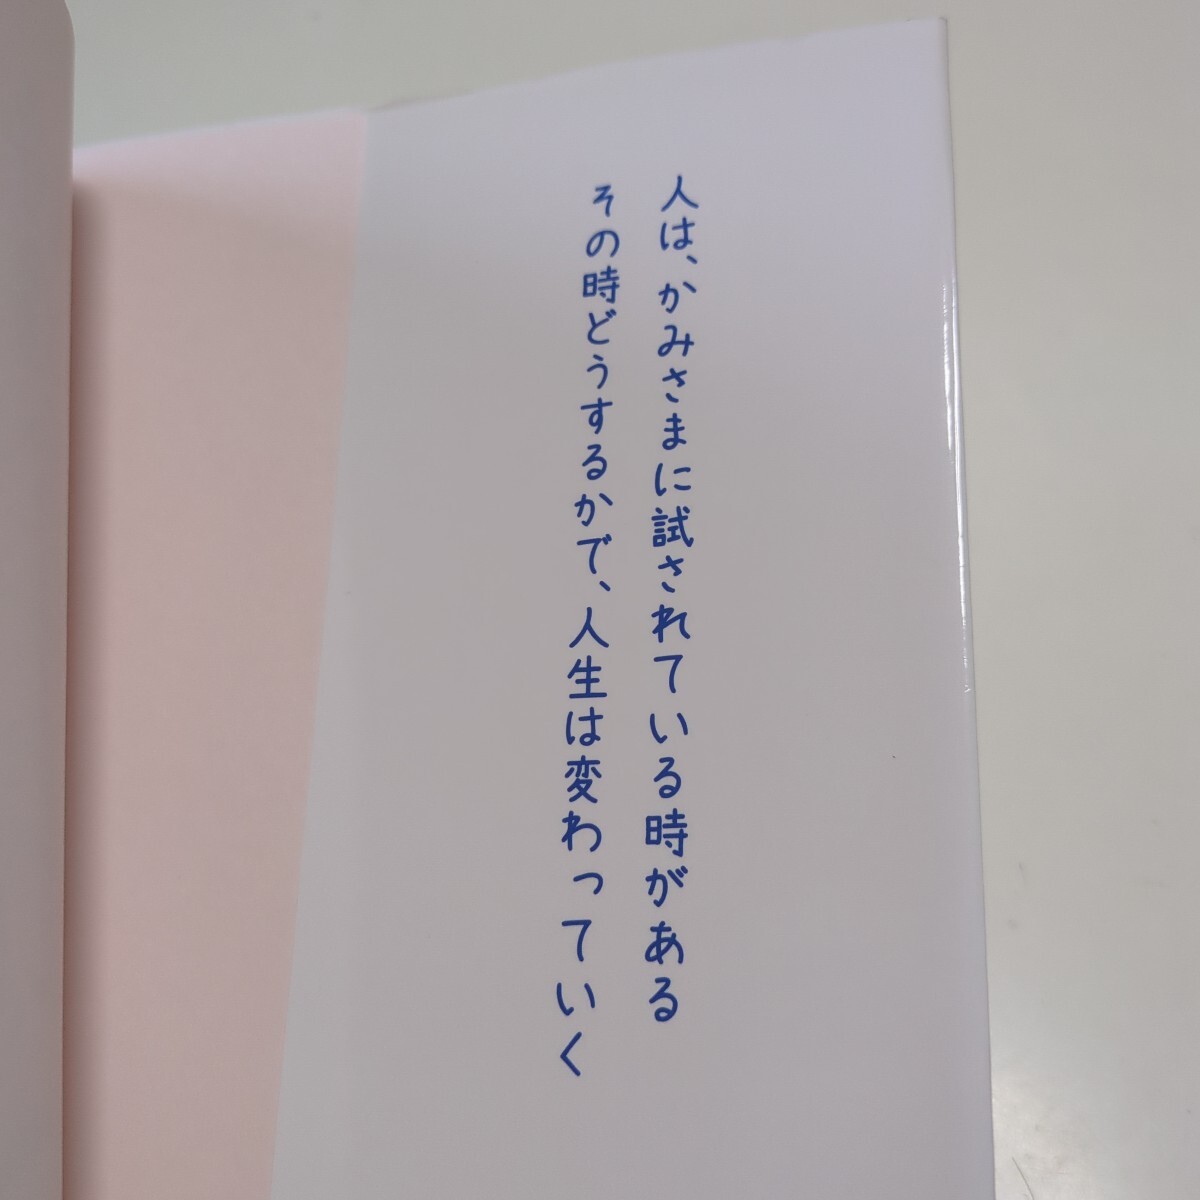 人は、かみさまに試されている時がある
その時どうするかで、人生は変わっていく